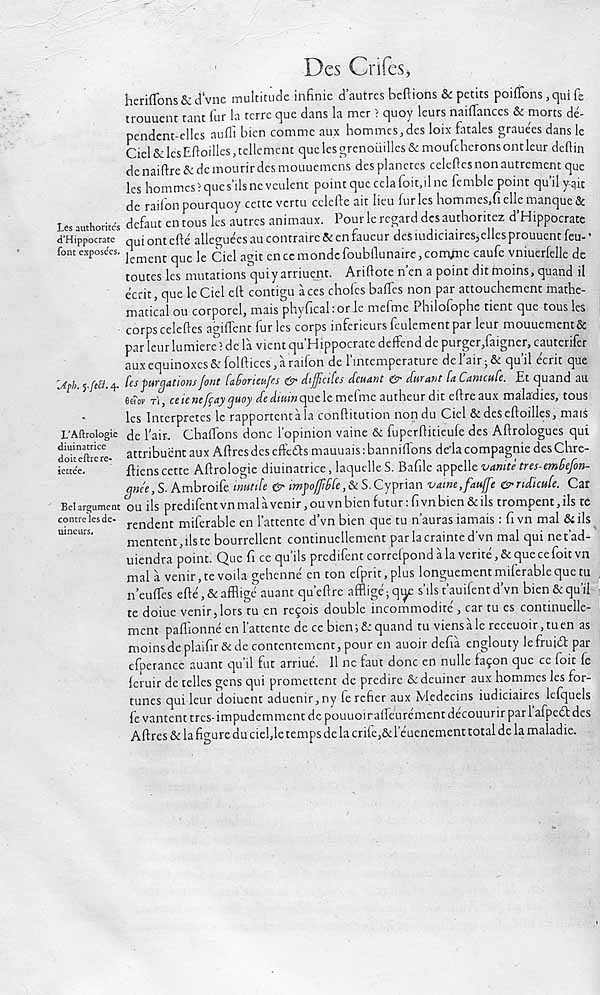 Des Criſes,
heriſſons & d'vne multitude infinie d'autres beſtions & petits poiſſons, qui ſe
trouuent tant ſur la terre que dans la mer? quoy leurs naiſſances & morts dé-
pendent-elles auſſi bien comme aux hommes, des loix fatales grauées dans le
Ciel & les Eſtoilles, tellement que les grenoüilles & mouſcherons ont leur deſtin
de naiſtre & de mourir des mouuemens des planetes celeſtes non autrement que
les hommes? que s'ils ne veulent point que cela ſoit, il ne ſemble point qu'il y ait
de raiſon pourquoy cette vertu celeſte ait lieu ſur les hommes, ſi elle manque &
defaut en tous les autres animaux. Pour le regard des authoritez d'Hippocrate
qui ont eſté alleguées au contraire & en faueur des iudiciaires, elles prouuent ſeu-
lement que le Ciel agit en ce monde ſoubſlunaire, comme cauſe vniuerſelle de
toutes les mutations qui y arriuent. Ariſtote n'en a point dit moins, quand il
écrit, que le Ciel eſt contigu à ces choſes baſſes non par attouchement mathe-
matical ou corporel, mais phyſical: or le meſme Philoſophe tient que tous les
corps celeſtes agiſſent ſur les corps inferieurs ſeulement par leur mouuement &
par leur lumiere? de là vient qu'Hippocrate deffend de purger, ſaigner, cauteriſer
aux equinoxes & ſolſtices, à raiſon de l'intemperature de l'air; & qu'il écrit que
les purgations ſont laborieuſes & difficiles deuant & durant la Canicule. Et quand au
θεῖον τι, ce ie ne ſçay quoy de diuin que le meſme autheur dit eſtre aux maladies, tous
les Interpretes le rapportent à la conſtitution non du Ciel & des eſtoilles, mais
de l'air. Chaſſons donc l'opinion vaine & ſuperſtitieuſe des Aſtrologues qui
attribuënt aux Aſtres des effects mauuais: banniſſons de la compagnie des Chre-
ſtiens cette Aſtrologie diuinatrice, laquelle S. Baſile appelle vanité tres-embeſon-
gnée, S. Ambroiſe inutile & impoſſible, & S. Cyprian vaine, fauſſe & ridicule. Car
ou ils prediſent vn mal à venir, ou vn bien futur: ſi vn bien & ils trompent, ils te
rendent miſerable en l'attente d'vn bien que tu n'auras iamais: ſi vn mal & ils
mentent, ils te bourrellent continuellement par la crainte d'vn mal qui ne t'ad-
uiendra point. Que ſi ce qu'ils prediſent correſpond à la verité, & que ce ſoit vn
mal à venir, te voila gehenné en ton eſprit, plus longuement miſerable que tu
n'euſſes eſté, & affligé auant qu'eſtre affligé; que s'ils t'auiſent d'vn bien & qu'il
te doiue venir, lors tu en reçois double incommodité, car tu es continuelle-
ment paſſionné en l'attente de ce bien; & quand tu viens à le receuoir, tu en as
moins de plaiſir & de contentement, pour en auoir deſià englouty le fruict par
eſperance auant qu'il fut arriué. Il ne faut donc en nulle façon que ce ſoit ſe
ſeruir de telles gens qui promettent de predire & deuiner aux hommes les for-
tunes qui leur doiuent aduenir, ny ſe refier aux Medecins iudiciaires leſquels
ſe vantent tres-impudemment de pouuoir aſſeurément découurir par l'aſpect des
Aſtres & la figure du ciel, le temps de la criſe, & l'éuenement total de la maladie.
Les authorités
d'Hippocrate
ſont expoſées.
Aph. 5. ſect. 4.
L'Aſtrologie
diuinatrice
doit eſtre re-
iettée.
Bel argument
contre les de-
uineurs.